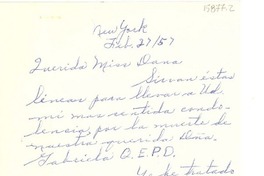 15877-2
New York
Feb. 27/57
Querida Miss Dana
Sirvan éstas
líneas para llevar a Ud.
mi mas sentida condo-
lencia por la muerte de
nuestra querida Doña
Gabriela Q.E.P.D.
Yo he tratado